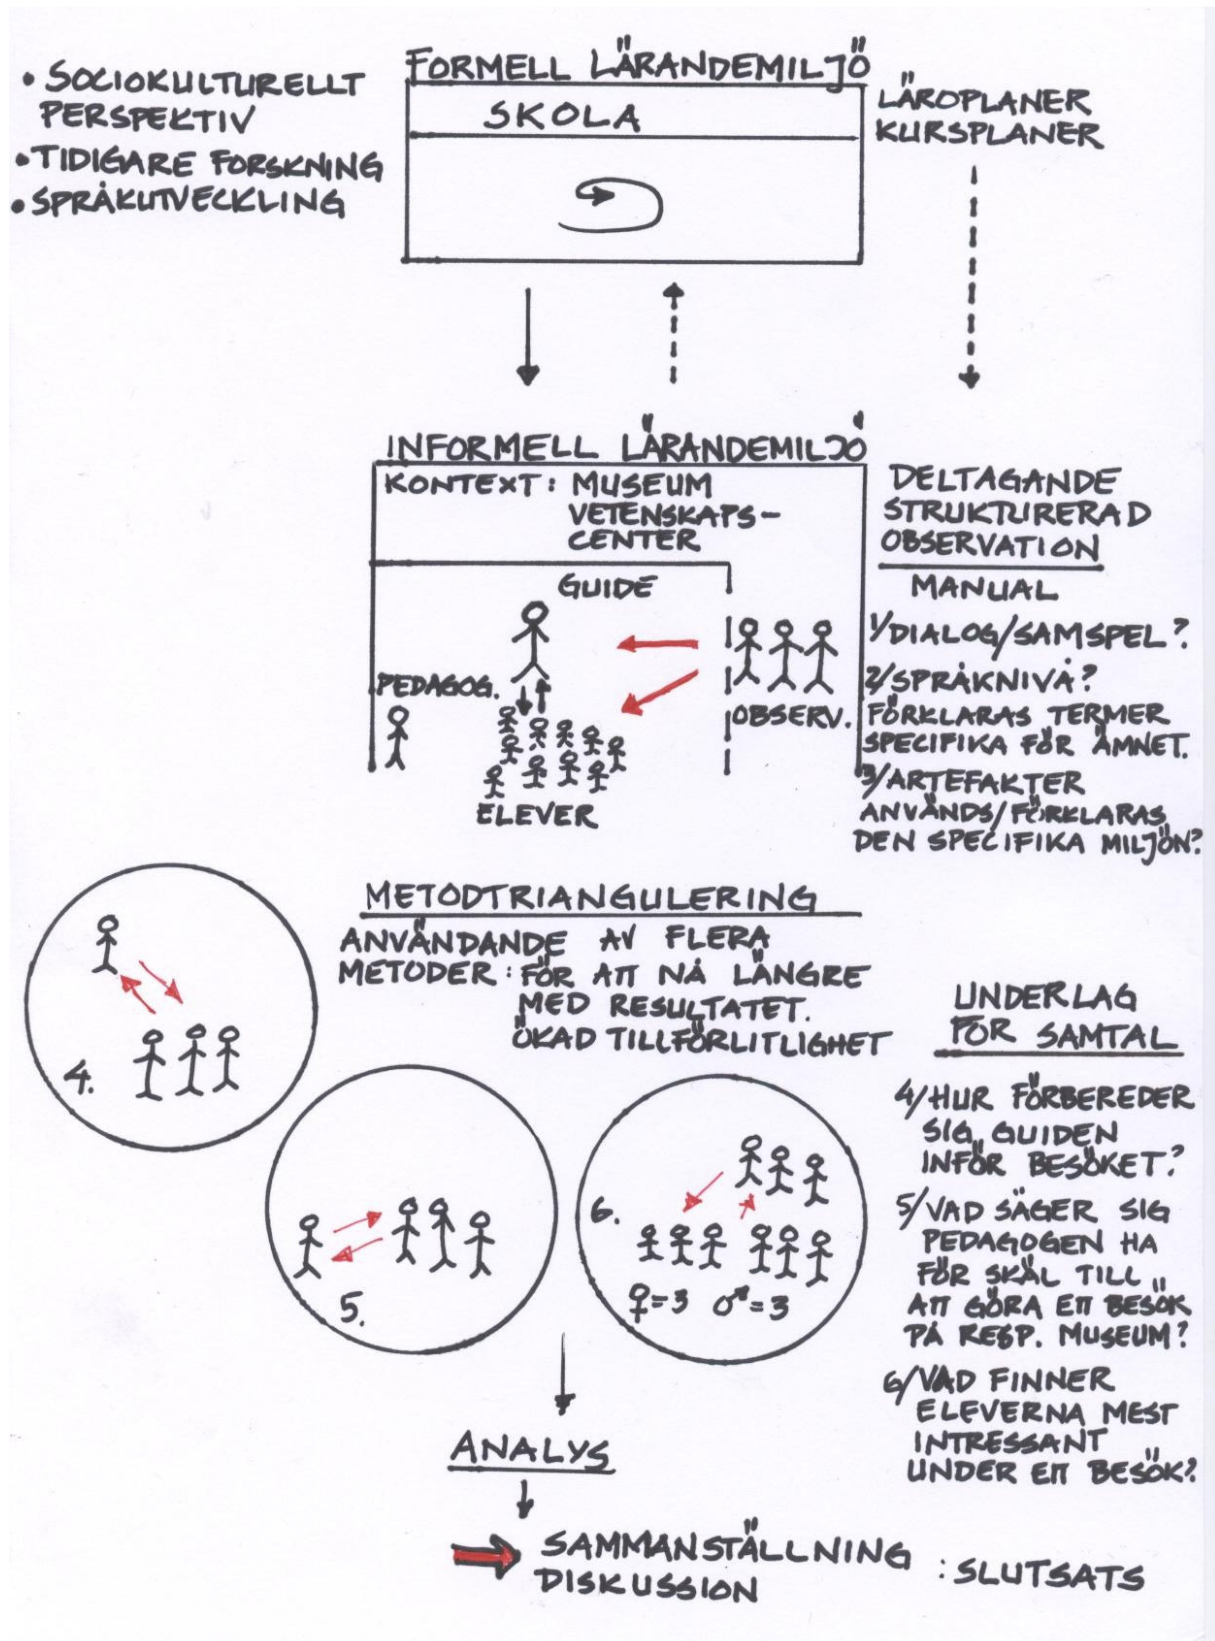 • SOCIOKULTURELLT
PERSPEKTIV
• TIDIGARE FORSKNING
• SPRÅKUTVECKLING
FORMELL LÄRANDEMILJÖ
SKOLA
LÄROPLANER
KURSPLANER
INFORMELL LÄRANDEMILJÖ
KONTEXT: MUSEUM
VETENSKAPS-
CENTER
GUIDE
PEDAGOG.
OBSERV.
ELEVER
DELTAGANDE
STRUKTURERAD
OBSERVATION
MANUAL
1/DIALOG/SAMSPEL?
2/SPRÅKNIVÅ?
FÖRKLARAS TERMER
SPECIFIKA FÖR ÄMNET.
3/ARTEFAKTER
ANVÄNDS/FÖRKLARAS
DEN SPECIFIKA MILJÖN?
METODTRIANGULERING
ANVÄNDANDE AV FLERA
METODER: FÖR ATT NÅ LÄNGRE
MED RESULTATET.
ÖKAD TILLFÖRLITLIGHET
4.
5.
6.
♀=3 ♂=3
UNDERLAG
FÖR SAMTAL
4/HUR FÖRBEREDER
SIG GUIDEN
INFÖR BESÖKET?
5/VAD SÄGER SIG
PEDAGOGEN HA
FÖR SKÄL TILL
ATT GÖRA ETT BESÖK
PÅ RESP. MUSEUM?
6/VAD FINNER
ELEVERNA MEST
INTRESSANT
UNDER ETT BESÖK?
ANALYS
SAMMANSTÄLLNING
DISKUSSION
: SLUTSATS